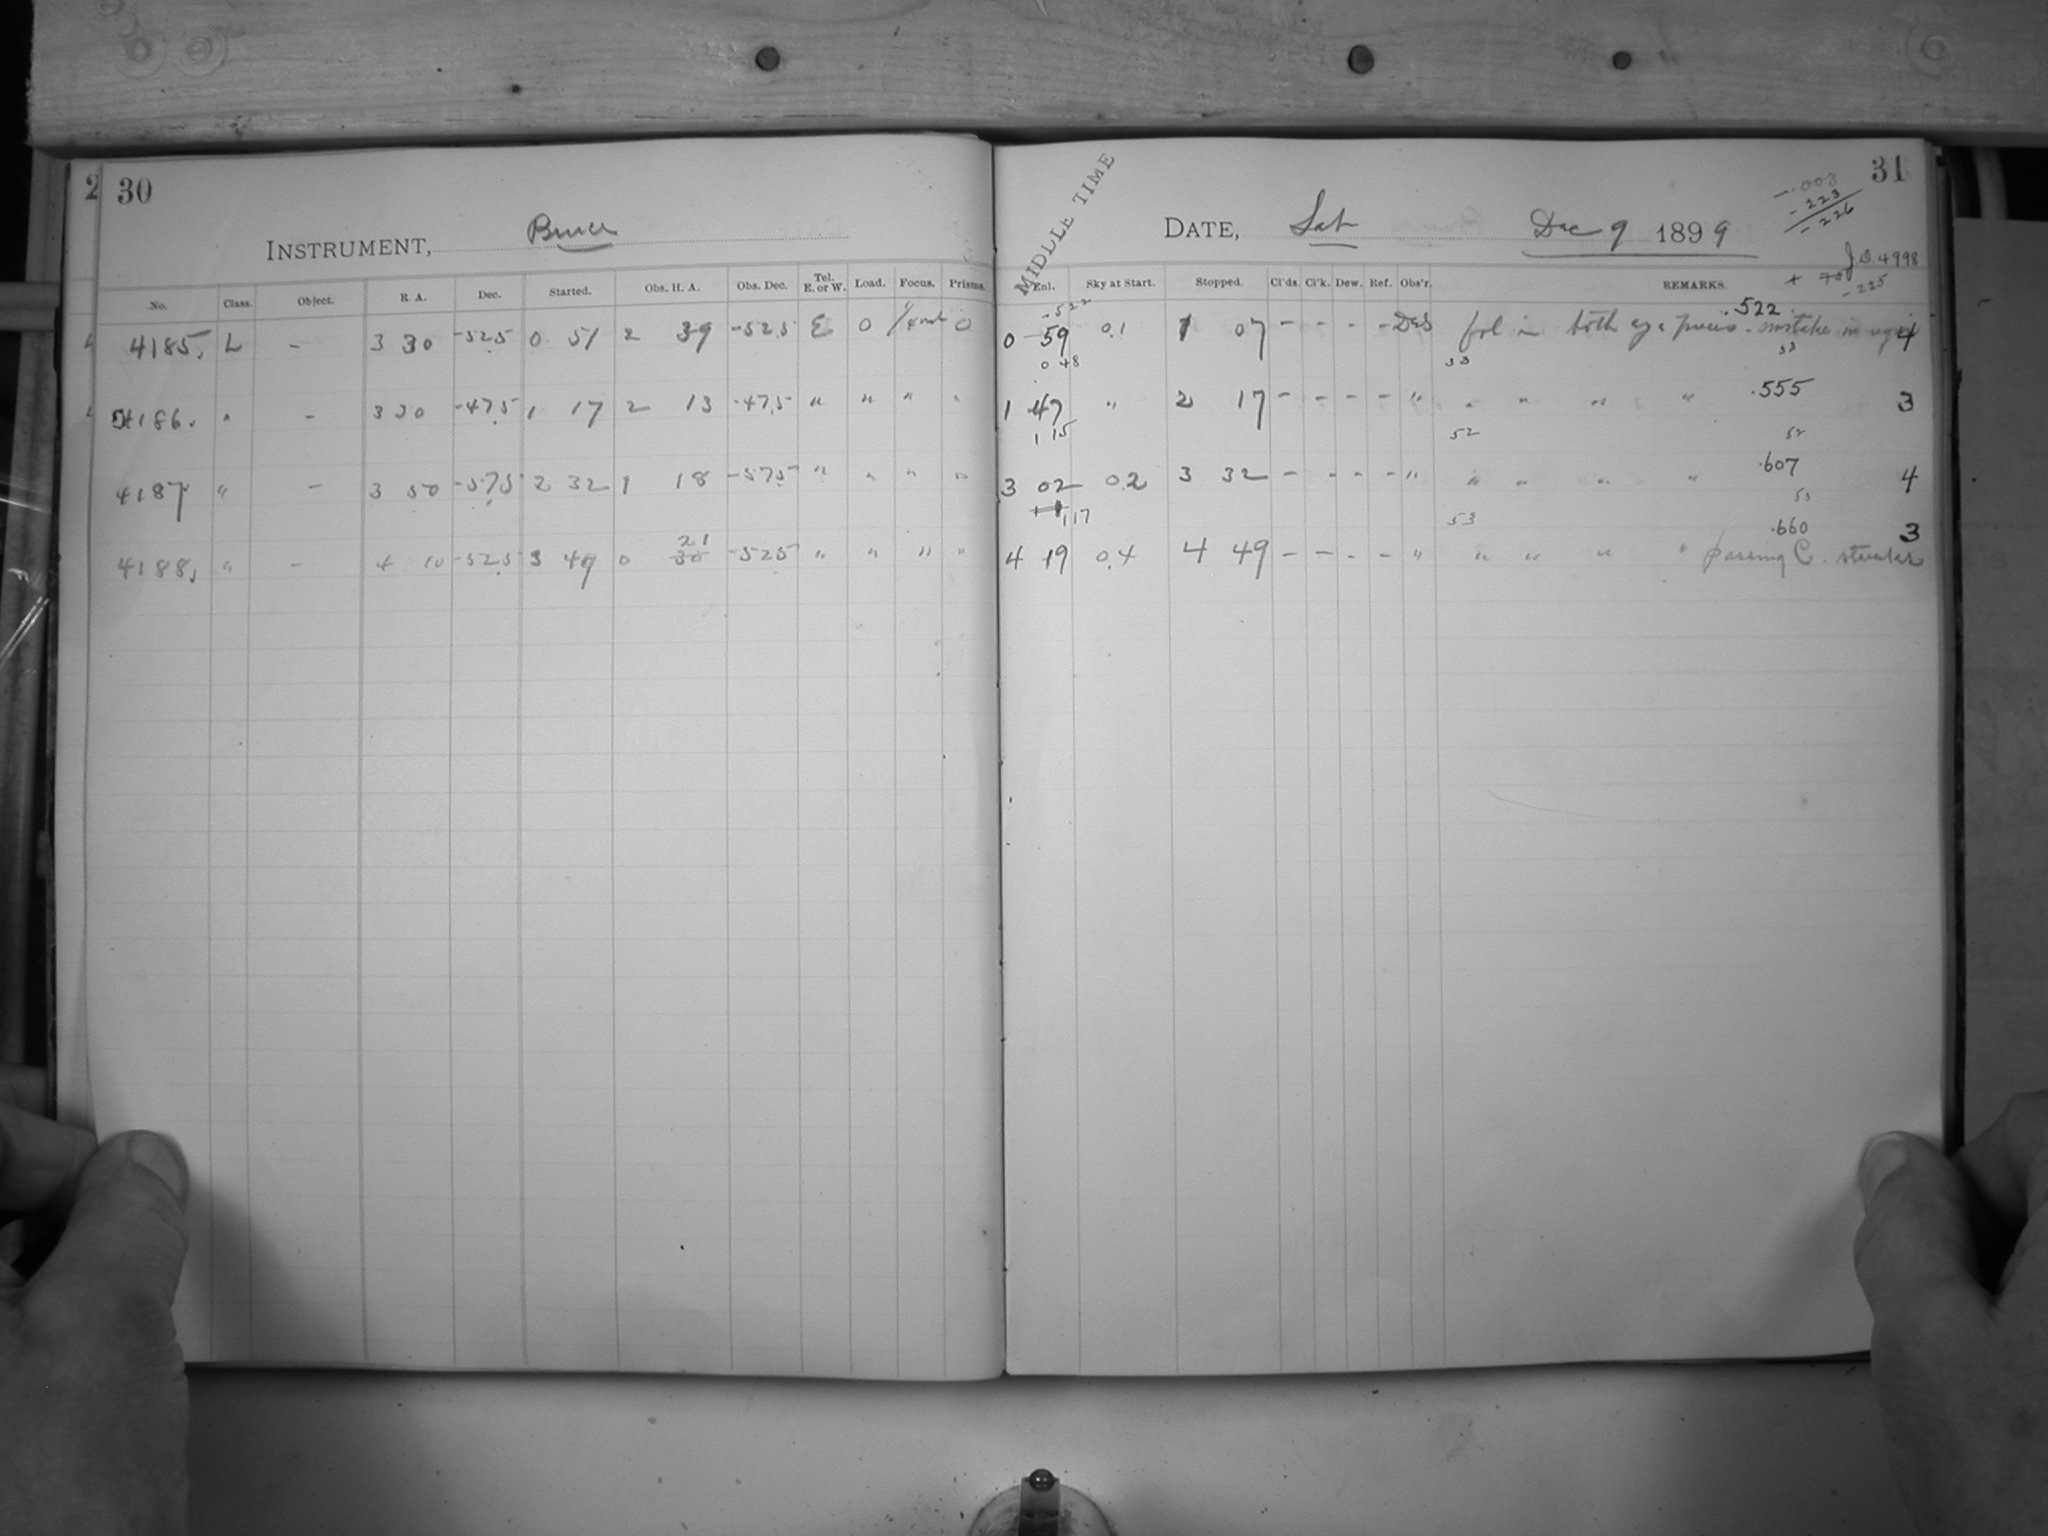 2 30
INSTRUMENT, Bruce
No. Class. Object. R A. Dec. Started. Obs. H. A. Obs. Dec. Tel. E. or W. Load. Focus. Prisms.
4185. L - 3 30 -52.5 0 51 2 39 -52.5 E 0 0
4186. " - 3 30 -47.5 1 17 2 13 -47.5 " " " "
4187 " - 3 50 -57.5 2 32 1 18 -57.5 " " " "
21
4188. " - 4 10 -52.5 3 49 0 30 -52.5 " " " "
31
MIDDLE TIME
-.003
-223
-226
DATE, Sat Dec 9 1899
J.D. 4998
+ -225
Enl. Sky at Start. Stopped. Cl'ds. Cl'k. Dew. Ref. Obs'r. REMARKS.
.522 .522
0 59 0.1 1 07 - - - - fol in both eye pieces. mistake in 4
0 48 33 33
1 47 " 2 17 - - - - " " " " " .555 3
1 15 52 52
3 02 0.2 3 32 - - - - " " " " " .607 4
1 17 53 53
.660 3
4 19 0.4 4 49 - - - - " " " " " passing C.